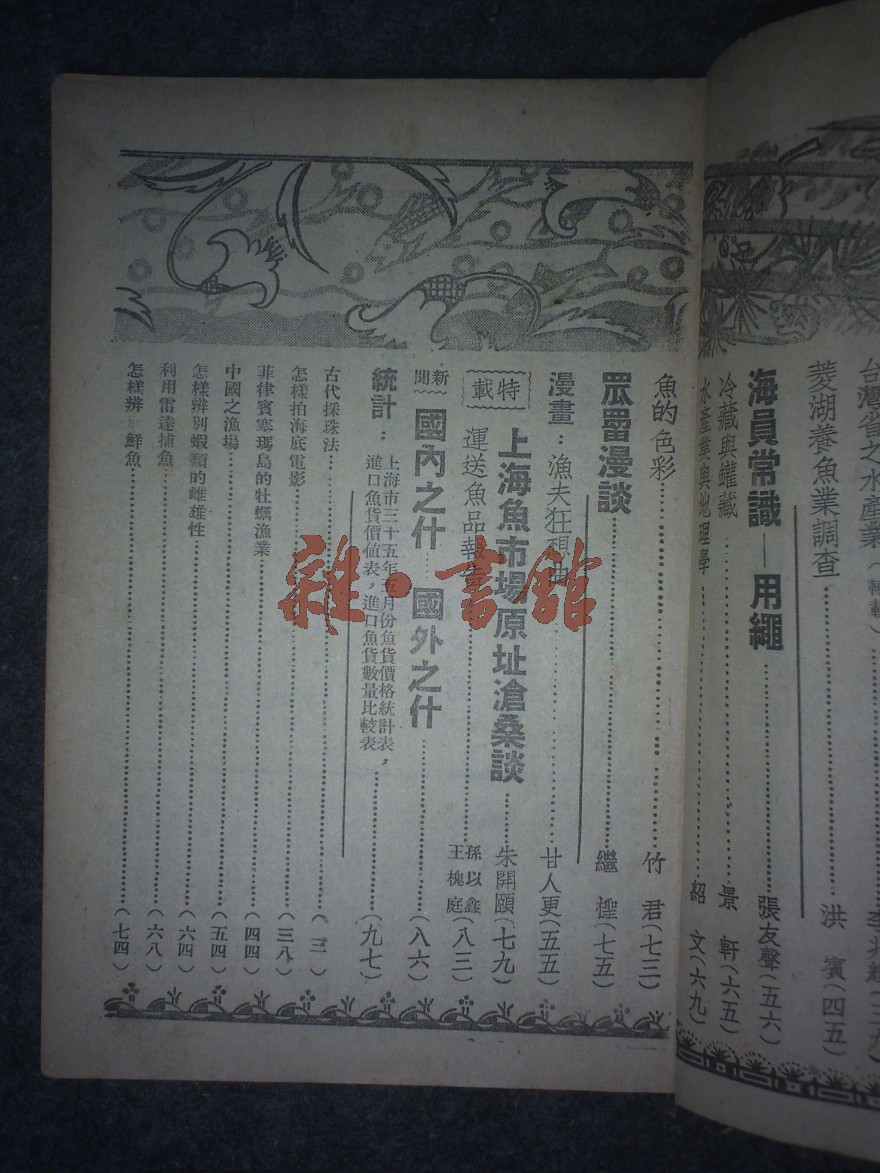 台灣省之水產業（轉載）……李兆輝（三九）
菱湖養魚業調查……洪 賓（四五）
海員常識—用繩……張友聲（五六）
冷藏與罐藏……景 軒（六五）
水產業與地理學……紹 文（六九）
魚的色彩……竹 君（七三）
眾罾漫談……繼 檉（七五）
漫畫：漁夫狂想曲……甘人更（五五）
特載
上海魚市場原址滄桑談……朱開頤（七九）
運送魚品報告……孫以鑫 王槐庭（八三）
新聞 國內之什……國外之什……（八六）
統計：上海市三十五年 月份魚貨價格統計表，
進口魚貨價值表，進口魚貨數量比較表……（九七）
古代採珠法……（三）
怎樣拍海底電影……（三八）
菲律賓寨瑪島的牡蠣漁業……（四四）
中國之漁場……（五四）
怎樣辨別蝦類的雌雄性……（六四）
利用雷達捕魚……（六八）
怎樣辨 鮮魚……（七四）
雜·書館